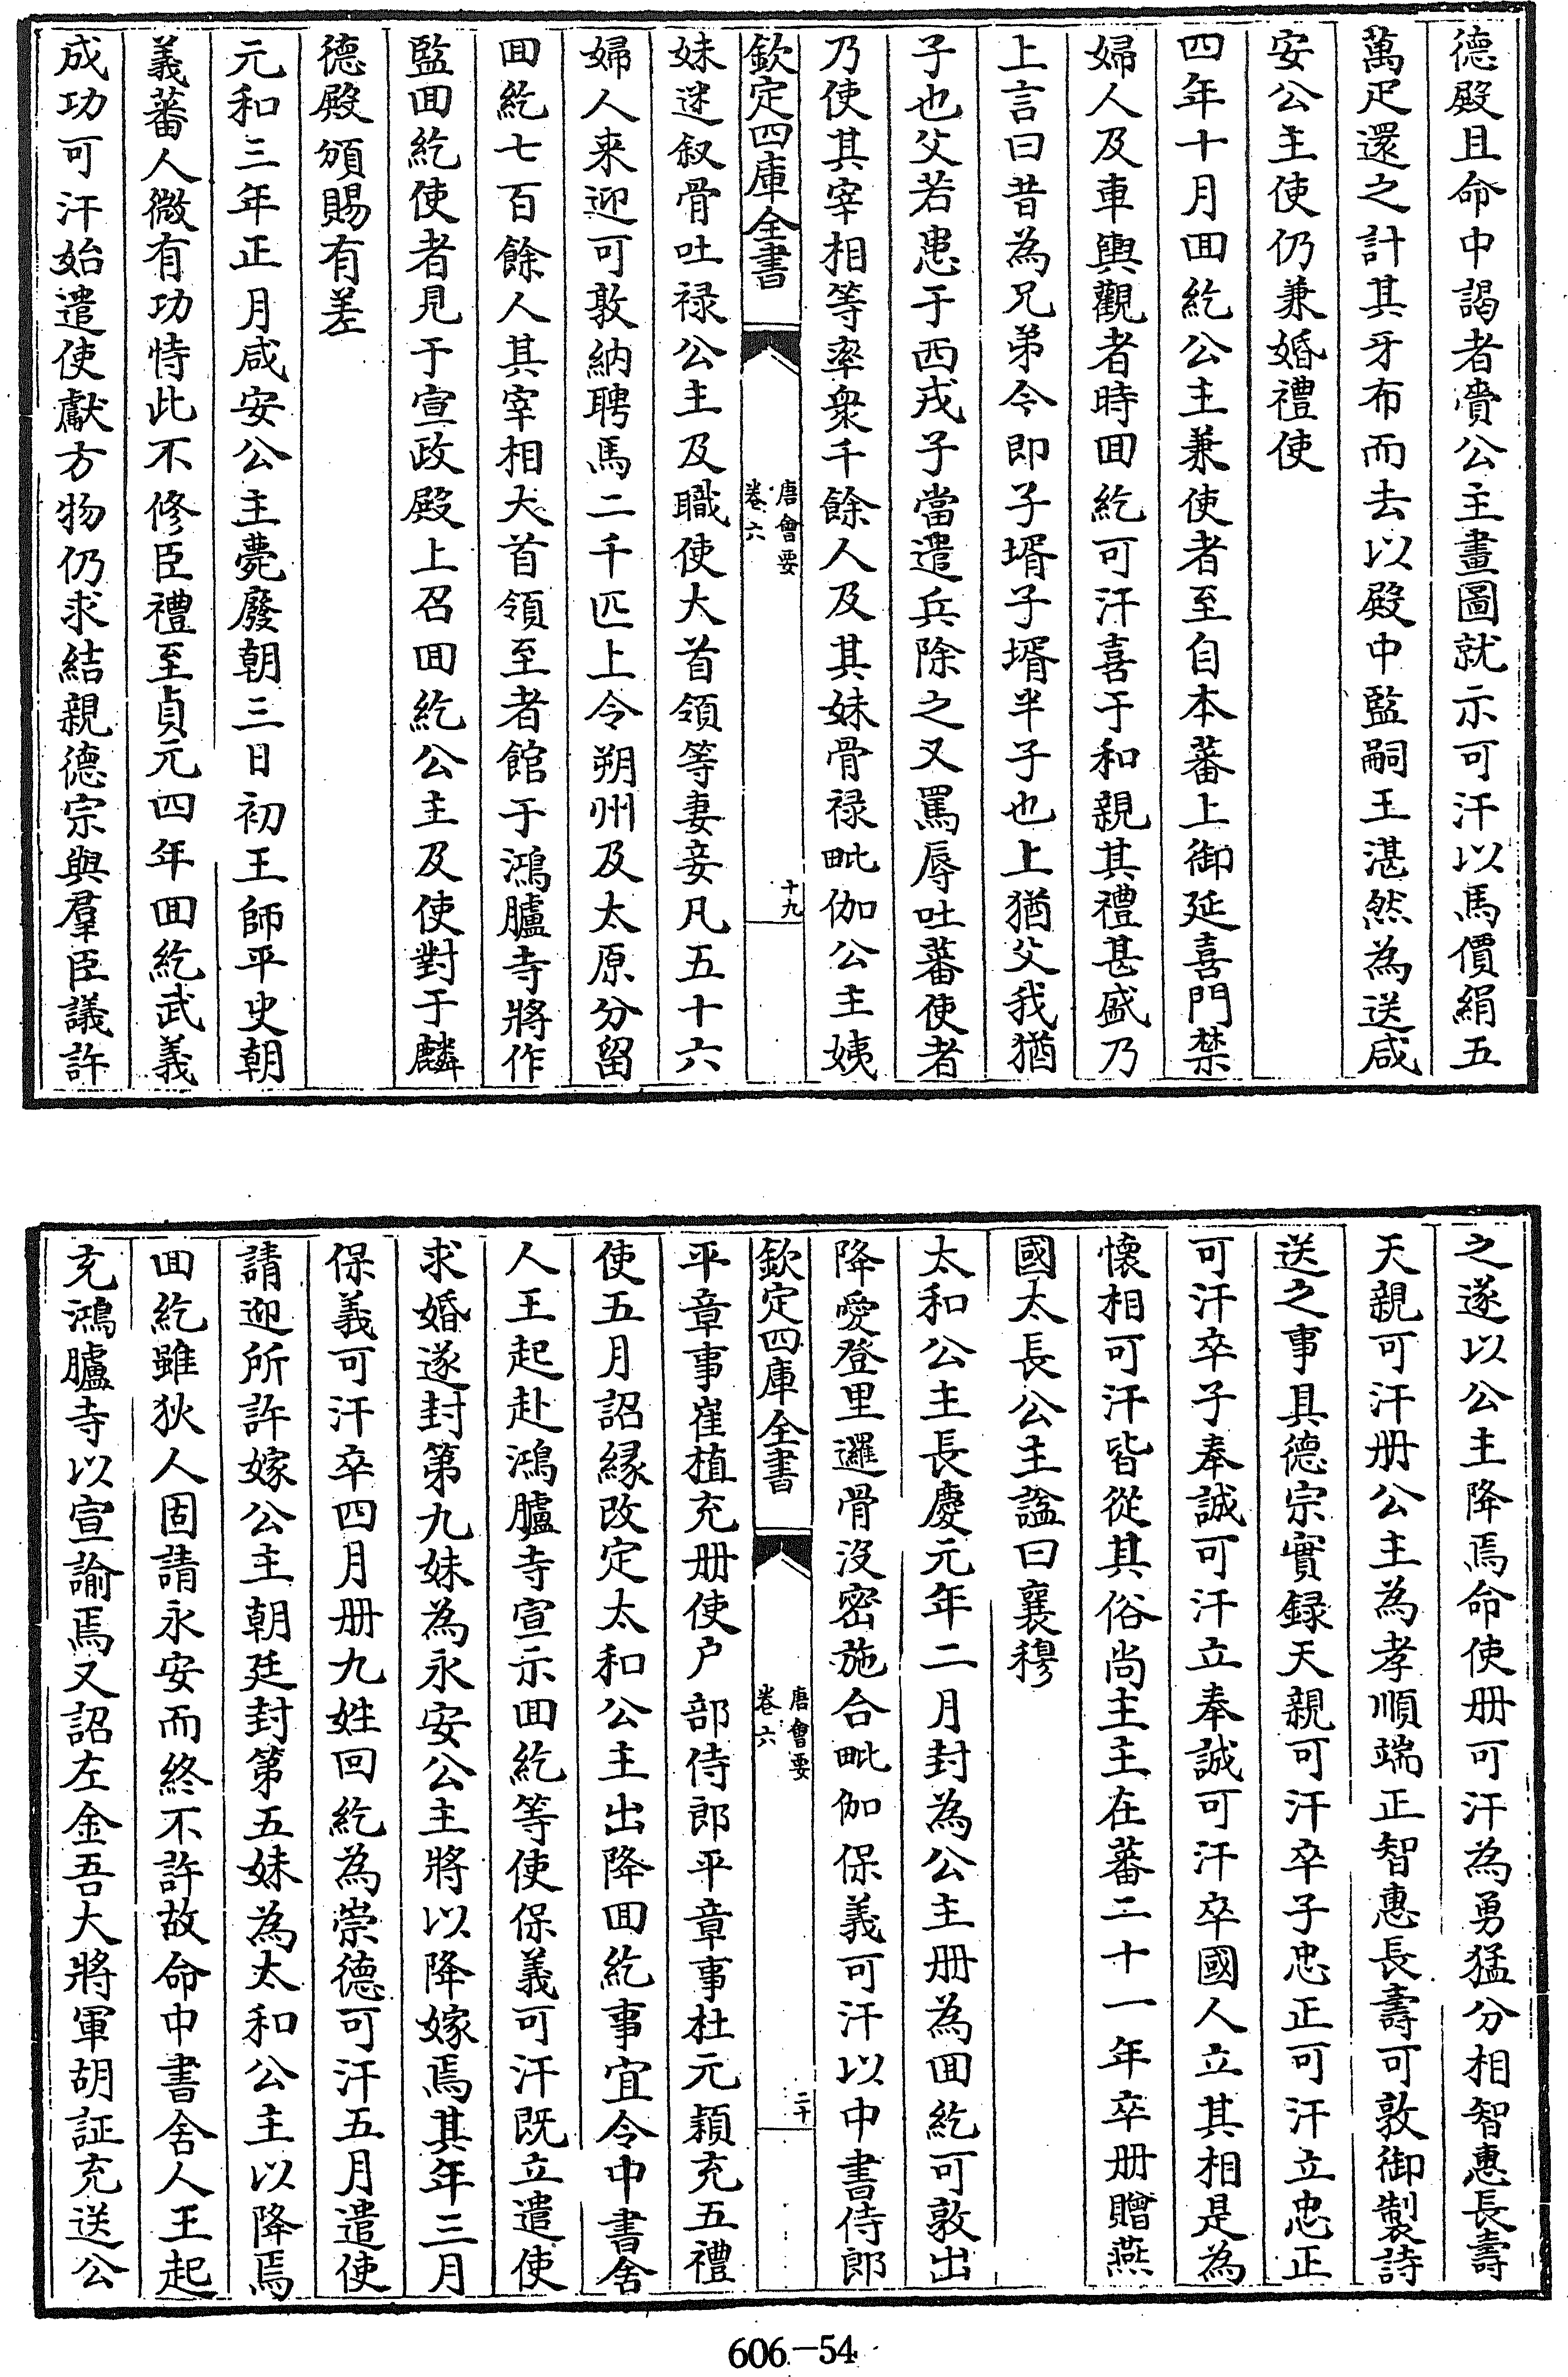 德殿且命中謁者賫公主畫圖就示可汗以馬價絹五
萬疋還之計其牙布而去以殿中監嗣王湛然為送咸
安公主使仍兼婚禮使
四年十月回紇公主兼使者至自本蕃上御延喜門禁
婦人及車輿觀者時回紇可汗喜于和親其禮甚盛乃
上言曰昔為兄弟今即子壻子壻半子也上猶父我猶
子也父若患于西戎子當遣兵除之又罵辱吐蕃使者
乃使其宰相等率衆千餘人及其妹骨禄毗伽公主姨
欽定四庫全書
唐會要
卷六
十九
妹迷叙骨吐禄公主及職使大首領等妻妾凡五十六
婦人来迎可敦納聘馬二千匹上令朔州及太原分留
回紇七百餘人其宰相大首領至者館于鴻臚寺將作
監回紇使者見于宣政殿上召回紇公主及使對于麟
德殿頒賜有差
元和三年正月咸安公主薨廢朝三日初王師平史朝
義蕃人微有功恃此不修臣禮至貞元四年回紇武義
成功可汗始遣使獻方物仍求結親德宗與羣臣議許
之遂以公主降焉命使册可汗為勇猛分相智惠長壽
天親可汗册公主為孝順端正智惠長壽可敦御製詩
送之事具德宗實録天親可汗卒子忠正可汗立忠正
可汗卒子奉誠可汗立奉誠可汗卒國人立其相是為
懷相可汗皆從其俗尚主主在蕃二十一年卒册贈燕
國太長公主諡曰襄穆
太和公主長慶元年二月封為公主册為回紇可敦出
降愛登里邏骨沒密施合毗伽保義可汗以中書侍郎
欽定四庫全書
唐會要
卷六
二十
平章事崔植充册使户部侍郎平章事杜元穎充五禮
使五月詔緣改定太和公主出降回紇事宜令中書舍
人王起赴鴻臚寺宣示回紇等使保義可汗既立遣使
求婚遂封第九妹為永安公主將以降嫁焉其年三月
保義可汗卒四月册九姓回紇為崇德可汗五月遣使
請迎所許嫁公主朝廷封第五妹為太和公主以降焉
回紇雖狄人固請永安而終不許故命中書舍人王起
充鴻臚寺以宣諭焉又詔左金吾大將軍胡証充送公
606-54